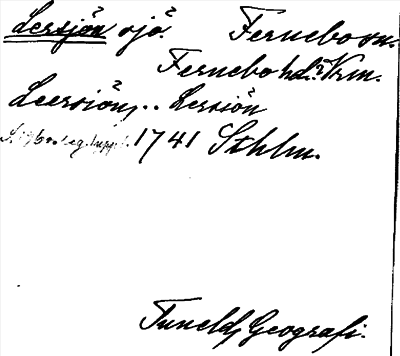 Lersjön sjö. Fernebo sn.
Fernebo hd. Vrm.
Leersiön, .. Lersiön
1741 Sthlm.
Tunelds Geografi.